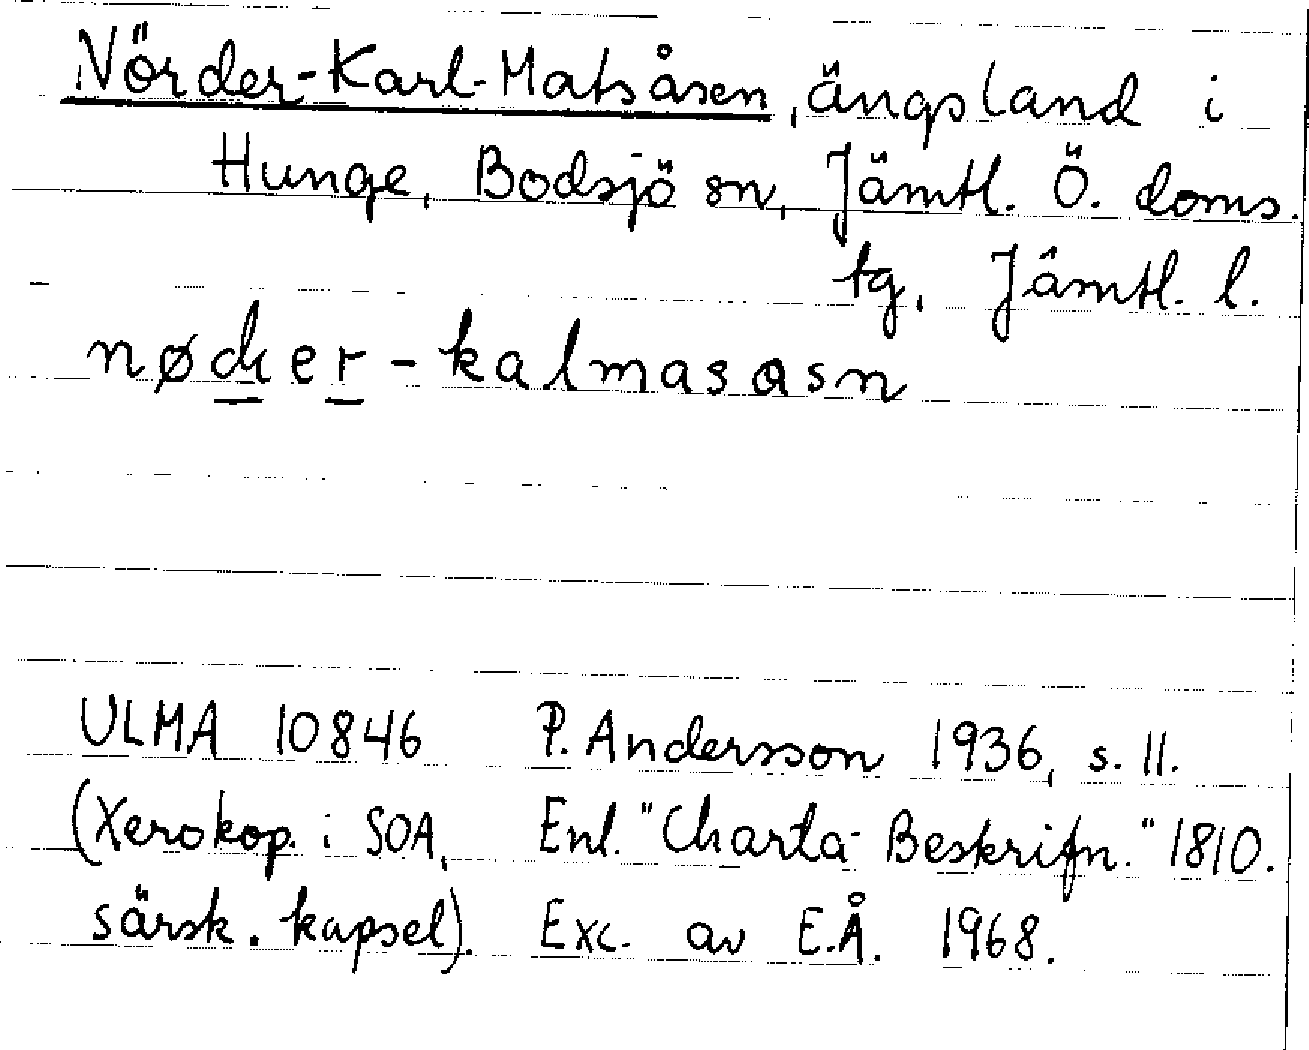 Nörder-Karl-Matsåsen, ängsland i
Hunge, Bodsjö sn, Jämtl. Ö. doms.
tg, Jämtl. l.
-kalmasasn
ULMA 10846 P. Andersson 1936, s. 11.
(Xerokop. i SOA, Enl. "Charta-Beskrifn." 1810.
särsk. kapsel). Exc. av E.Å. 1968.